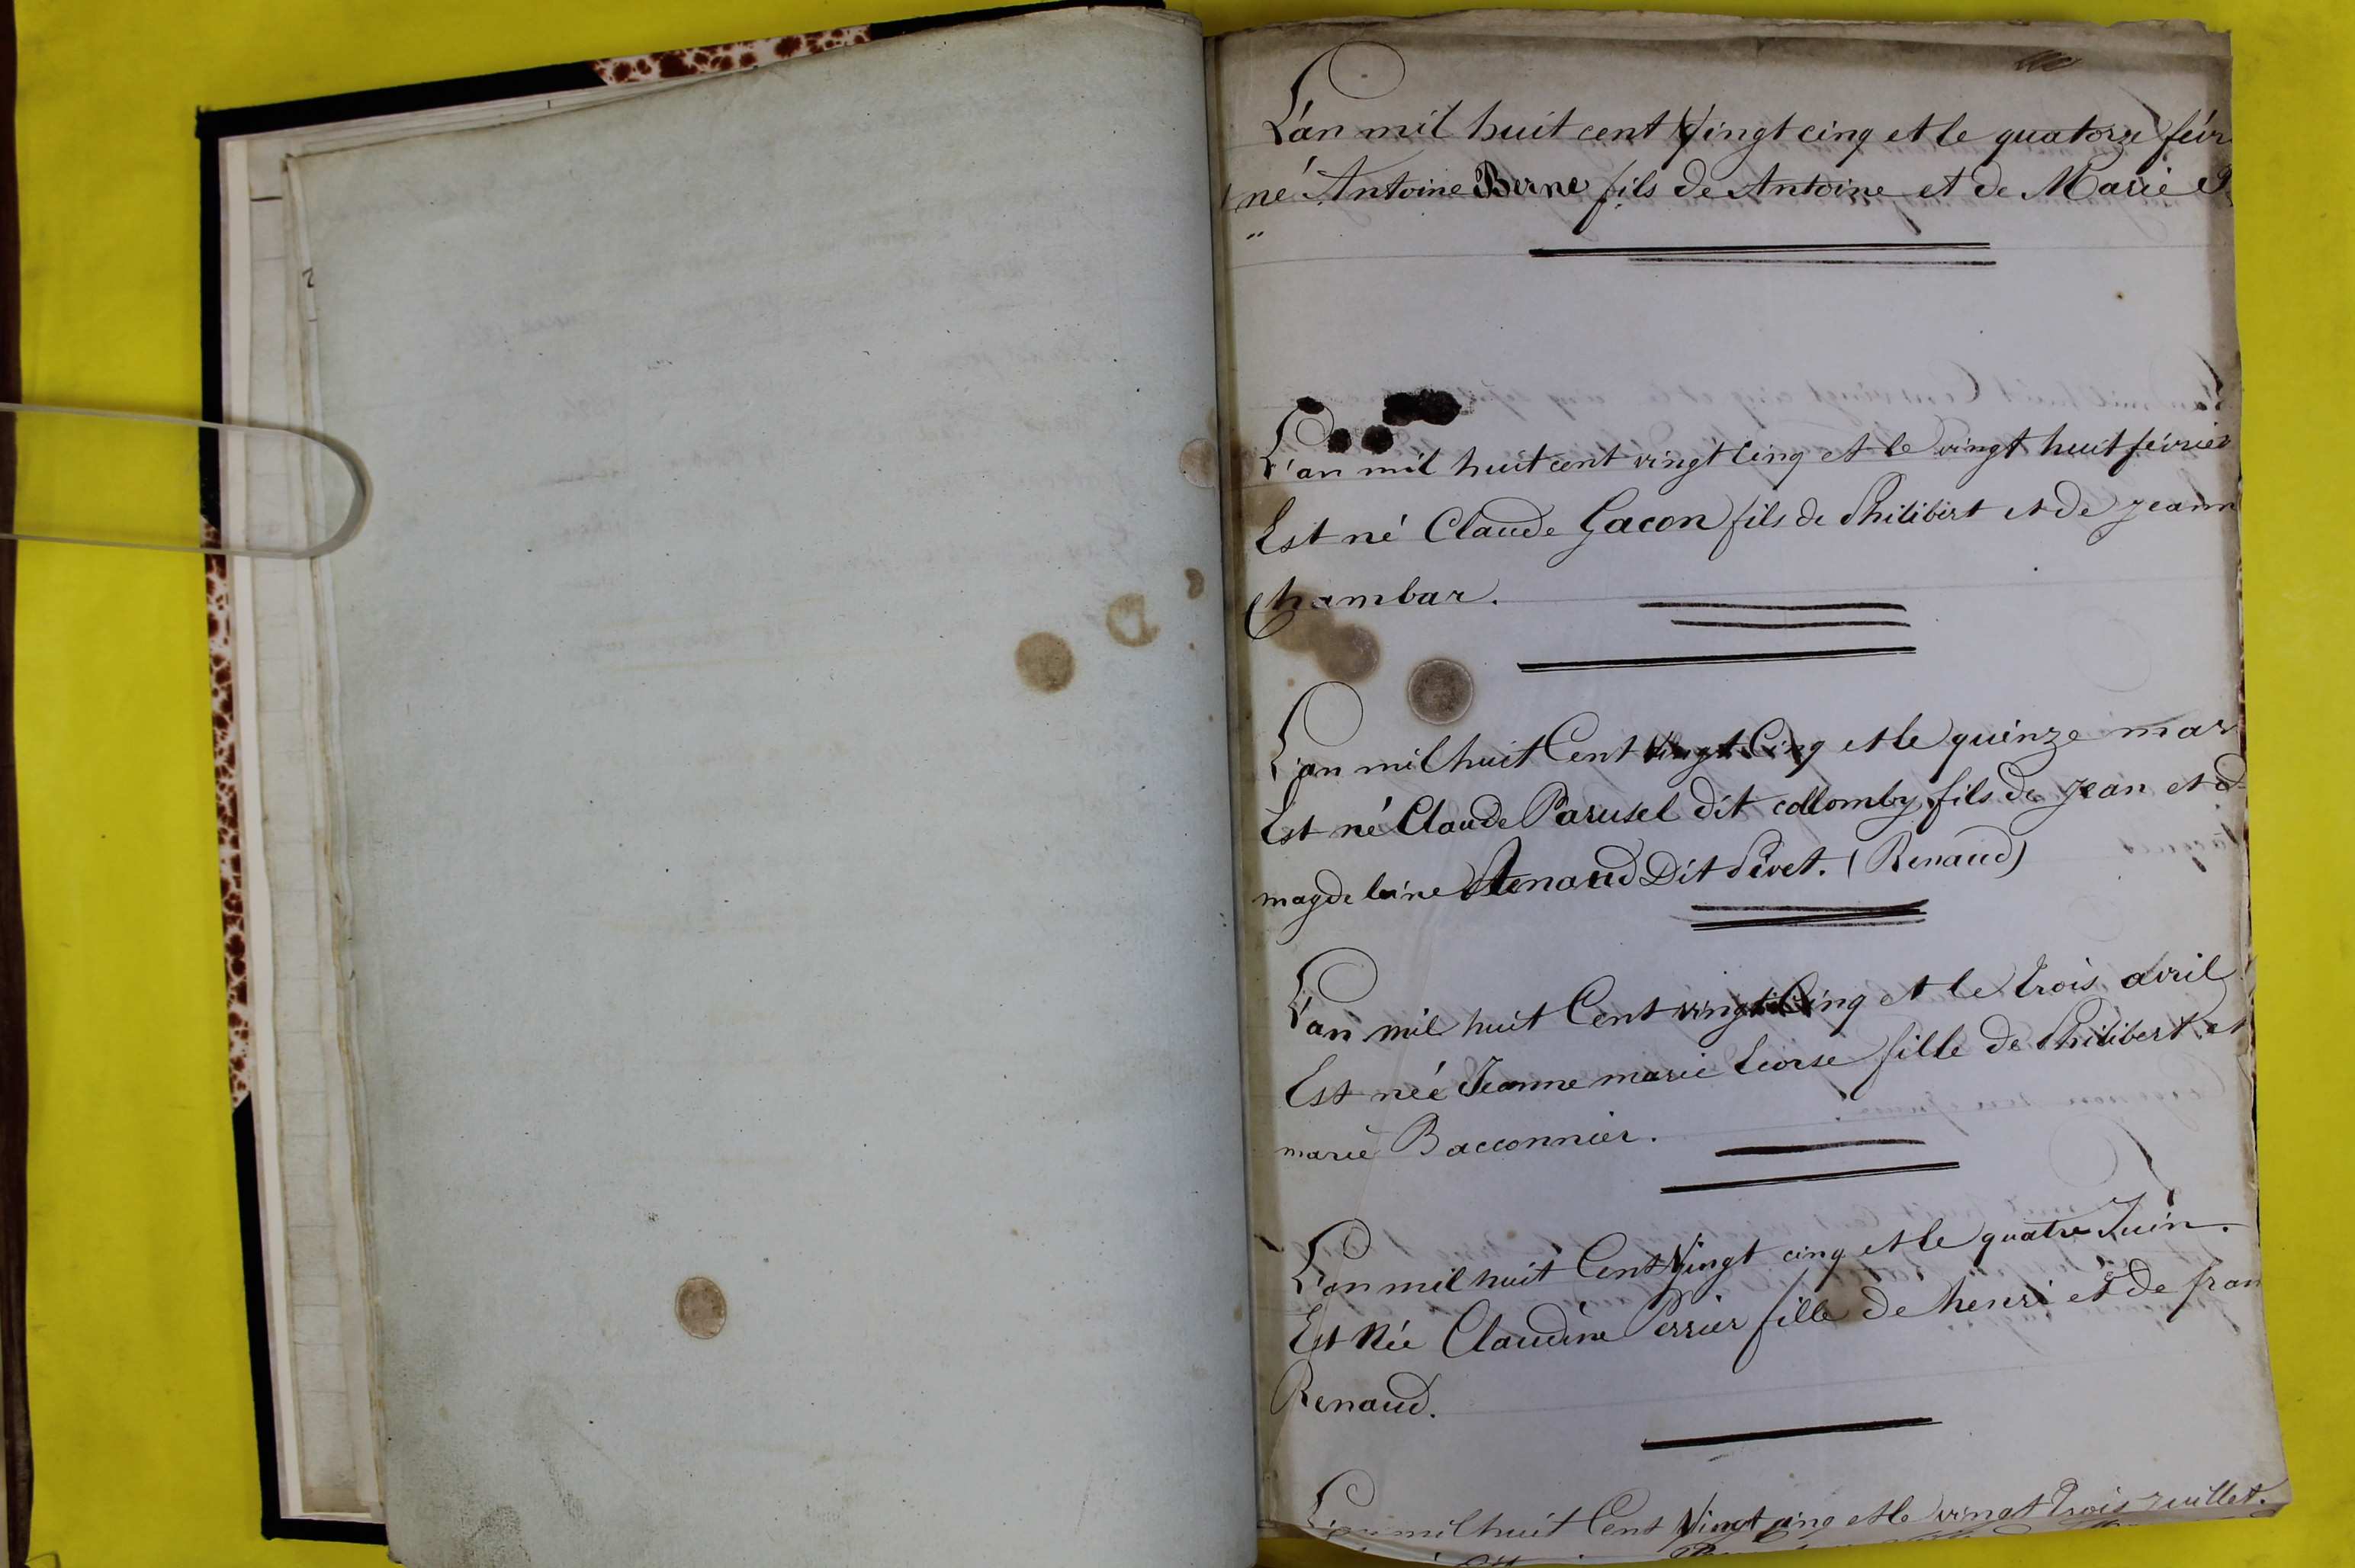 L'an mil huit cent Vingt cinq et le quatorze févr
né Antoine Berne fils de Antoine et de Marie
L'an mil huit cent vingt cinq et le vingt huit février
Est né Claude Gacon fils de Philibert et de jeann
Chambar.
L'an mil huit Cent Vingt Cinq et le quinze mar
Est né Claude Parusel dit collomby fils de jean et d
magdeleine Renaud Dit Pivet. (Renaud)
L'an mil huit Cent vingt Cinq et le trois avril
Est née Jeanne marie Liorse fille de Philibert et
marie Bacconnier.
L'an mil huit Cent Vingt cinq et le quatre Juin.
Est Née Claudine Perrier fille de henri et de fran
Renaud.
L'an mil huit Cent Vingt cinq et le vingt trois juillet.